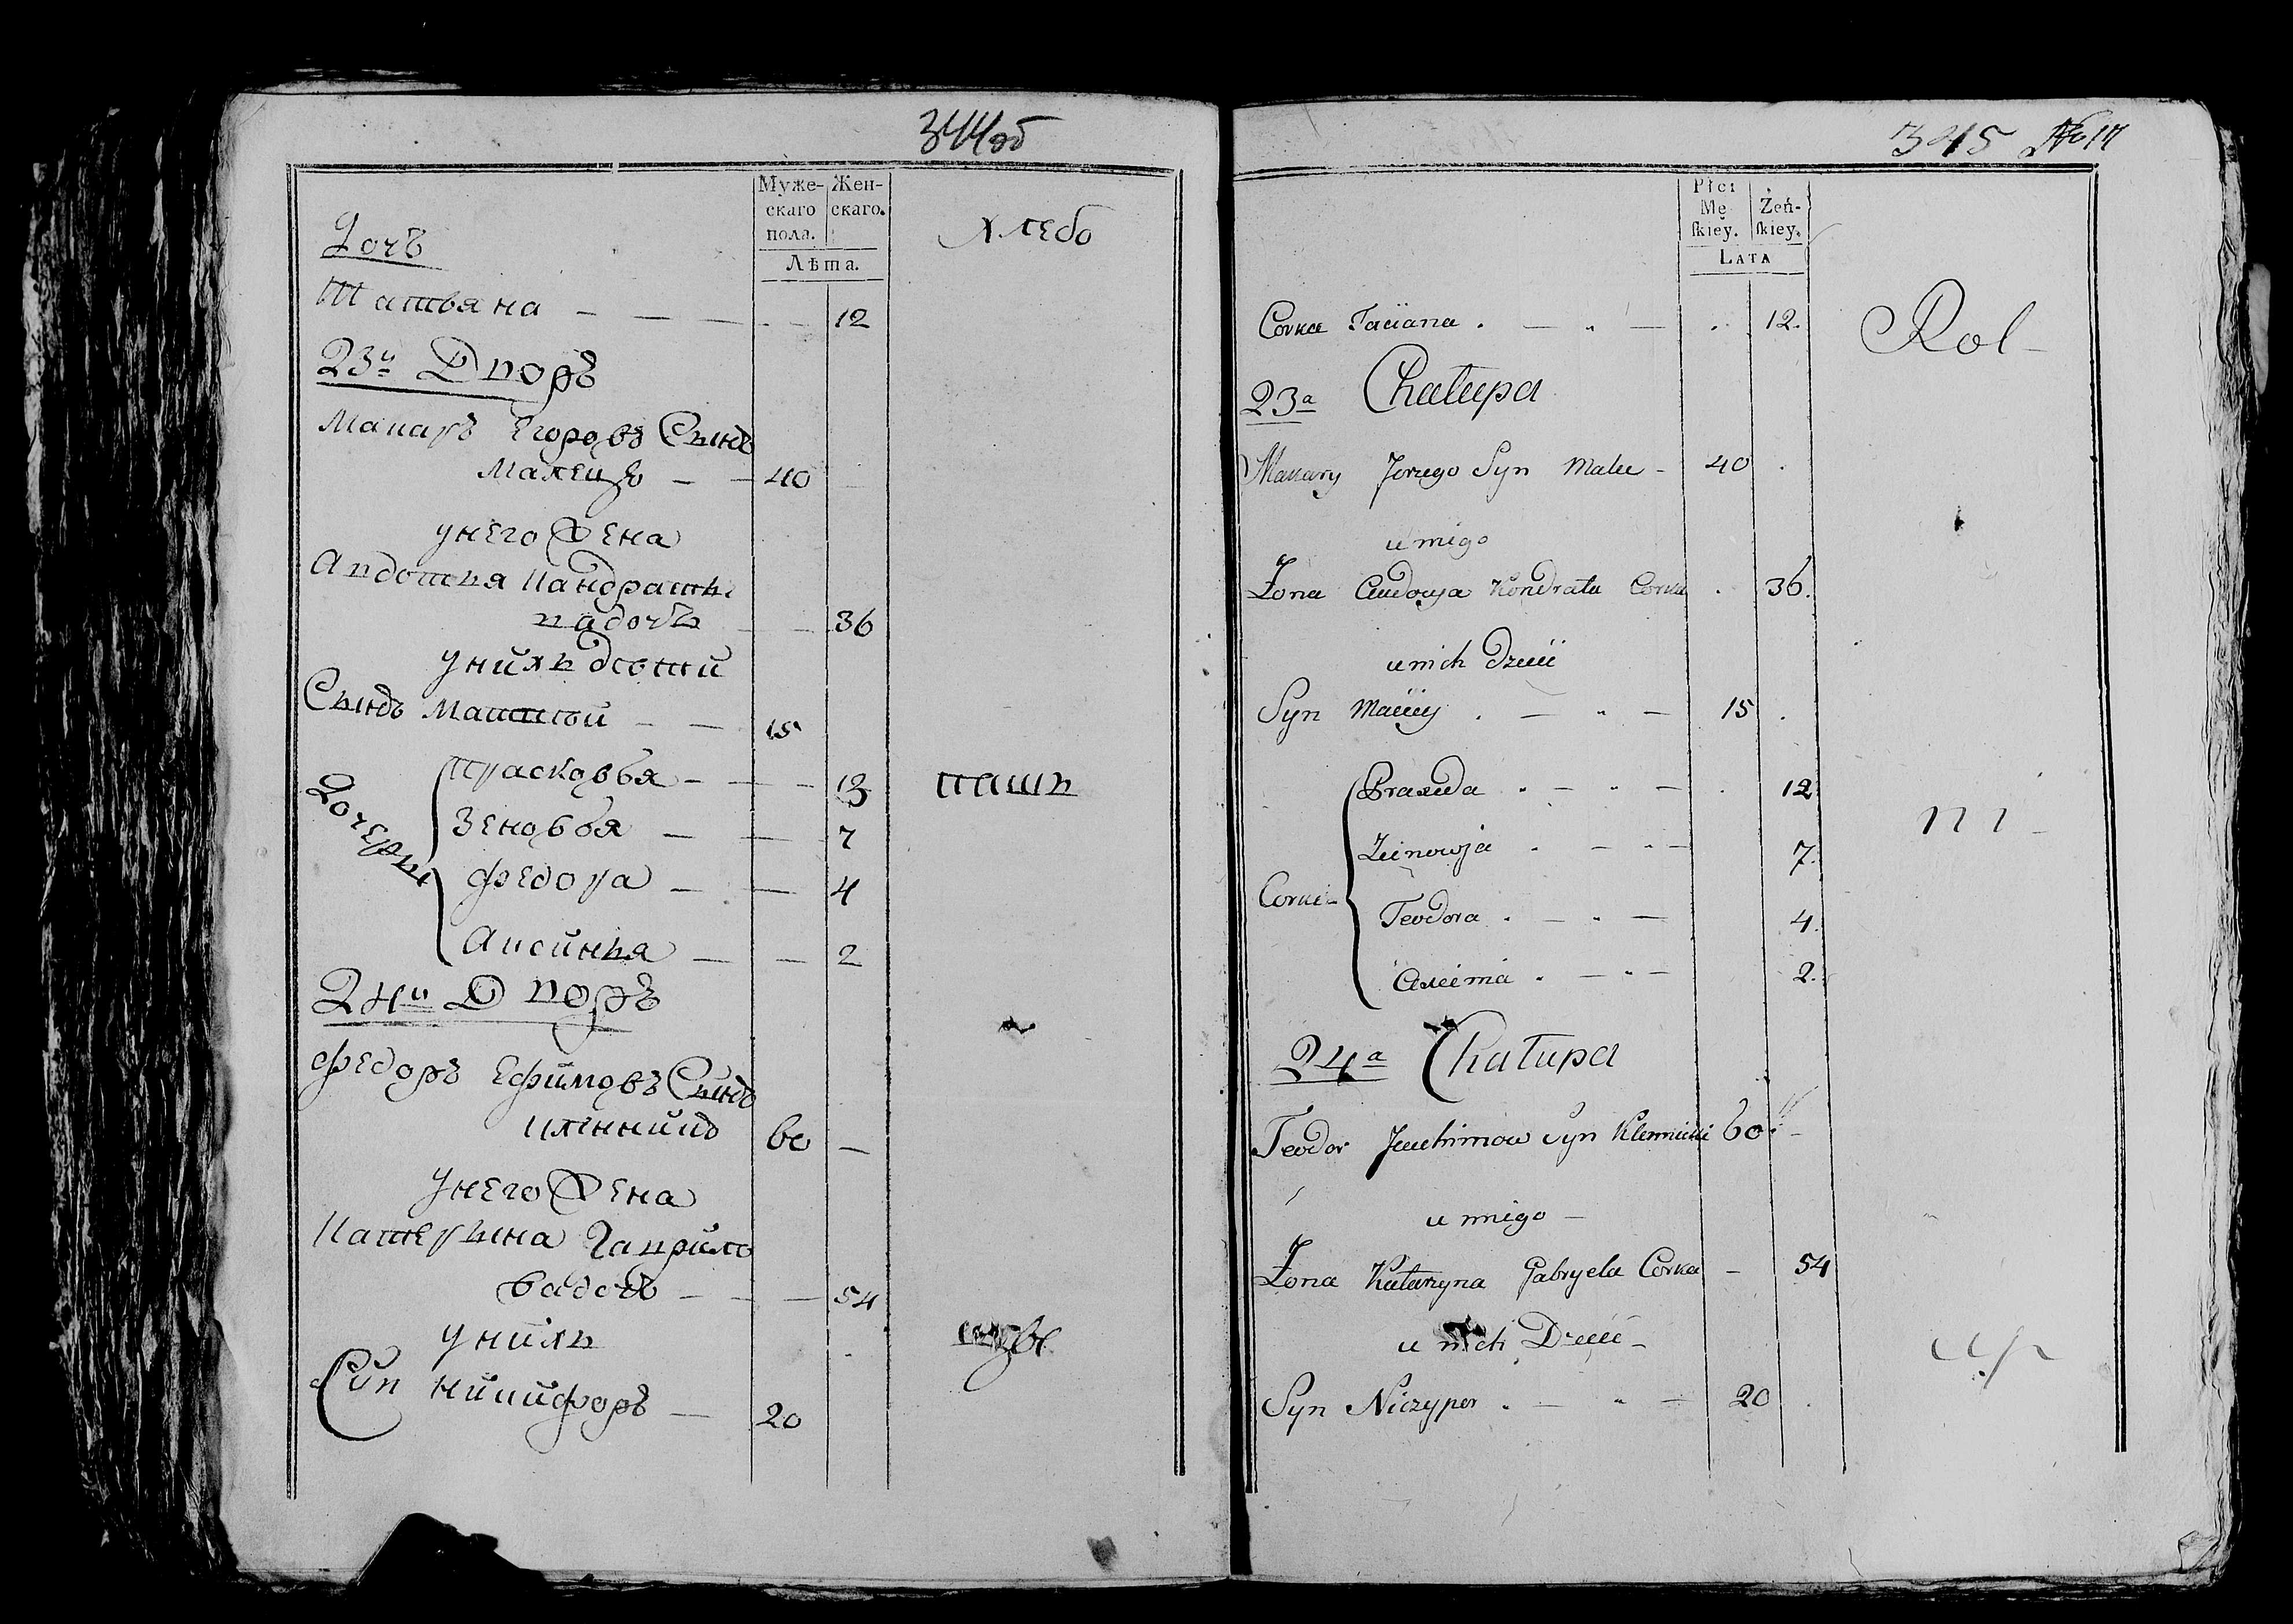 344об
Муже-
скаго
пола.
Жен-
скаго.
Лѣта.
хлебо
Дочъ
Татьяна — — — — 12
23й Дворъ
Макаръ Егоровъ Сынъ
Малецъ — — 40
унего Жена
Авдотья Кандрать
вадочь — — 36
унихъ дети
Сынъ Матвей — — 15
Дочеры
Прасковья — — — 13
Зеновья — — 7
Федора — — 4
Аксинья — — 2
паш
24й Дворъ
Федоръ Ефимовъ Сынъ
60 —
унего Жена
Катерына Гаврило
вадочь — — — 54
унихъ
Сын Никифоръ — 20
345 No 17
Płci
Mę-
ſkiey.
Żeń-
ſkiey.
LATA
Rol-
Corka Taciana . — " — . 12.
23a Chałupa
Makary Jorzego Syn Malec - 40 .
u niego
Żona Audocya Kondrata Corka . 36.
u nich Dzieci
Syn Maciey . — " — 15 .
Corki
Praxeda " — " — . 12
Zeinowja . — " — 7.
Teodora . — " — 4.
Axeinia . — " — 2.
ni-
24a Chałupa
Teodor Jeuchimow Syn Klennicki 60
u niego —
Żona Katarzyna Gabryela Corka — 54
u nich Dzieci —
Syn Niczyper . — " — 20 .